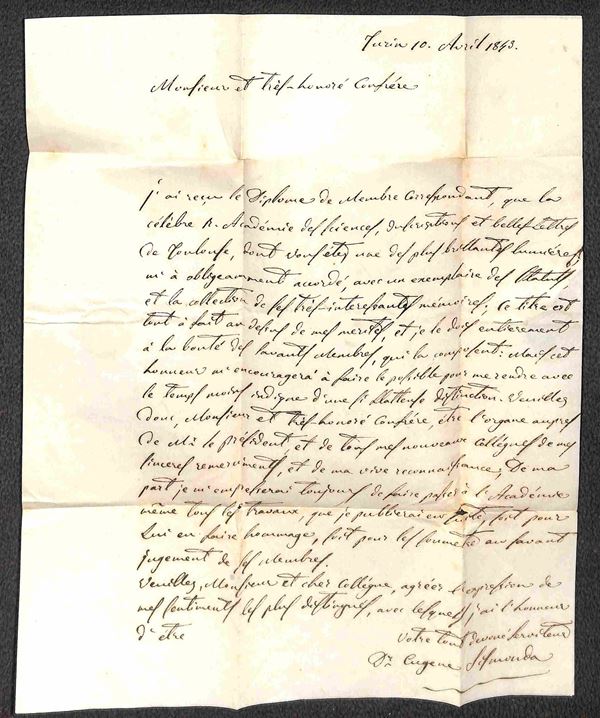 Turin 10. Avril 1843.
Monsieur et très-honoré Confrère
J'ai reçu le Diplome de Membre Correspondant, que la
célèbre R. Académie des Sciences, Inscriptions et belles-Lettres
de Toulouse, dont vous êtes une des plus brillantes lumières,
m'a obligeamment accordé, avec un exemplaire des Statuts
et la collection de ses très-interessantes mémoires, ce titre est
tout à fait au dessus de mes merites, et je le dois entierement
à la bonté des savants Membres, qui la composent: Mais cet
honneur m'encouragerà à faire le possible pour me rendre avec
le temps moins indigne d'une si flatteuse distinction. Veuillez
donc, Monsieur et très-honoré Confrère, être l'organe aupres
de Mr. le président et de tous mes nouveaux collègues de mes
sinceres remerciments, et de ma vive reconnaissance; De ma
part je m'empresserai toujours de faire passer à l'Académie
même tous les travaux, que je publierai en suite, soit pour
lui en faire hommage, soit pour les soumettre au savant
jugement de ses Membres.
Veuillez, Monsieur et cher Collègue, agréer l'expression de
mes sentiments les plus distingués, avec lesquels j'ai l'honneur
d'être
Votre tout devoué serviteur
Dr. Eugene Sismonda